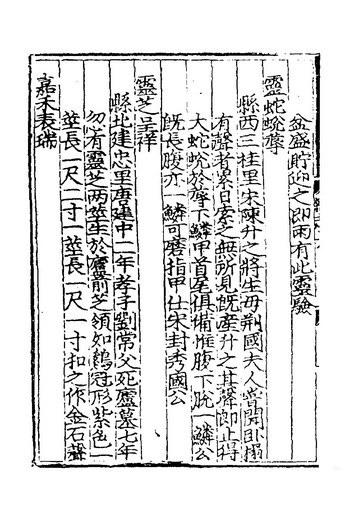 盆盛貯迎之即雨有此靈驗
靈蛇蛻孽
縣西三桂里宋陳升之將生母荆國夫人嘗聞卧榻
有聲者累日索之無所見旣產升之其聲即止得
大蛇蛻於孽下鱗甲首尾俱備惟腹下脫一鱗公
旣長腹亦一鱗可磨指甲仕宋封秀國公
靈芝呈祥
縣北建忠里唐建中二年孝子劉常父死廬墓七年
忽有靈芝两莖生於廬前芝領如鷄冠形紫色一
莖長一尺二寸一莖長一尺一寸扣之作金石聲
嘉禾表瑞